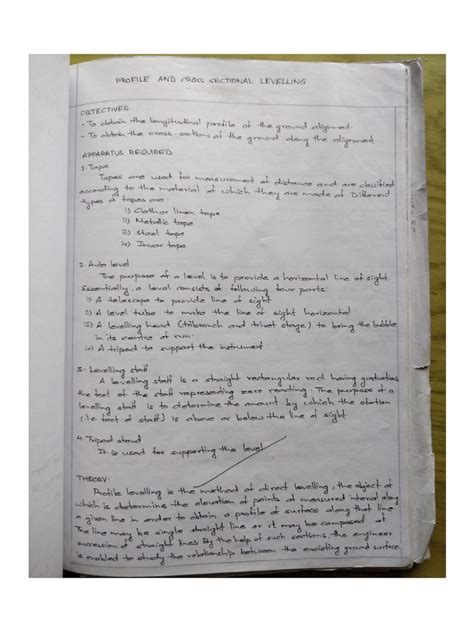 PROFILE AND CROSS SECTIONAL LEVELLING
OBJECTIVES
- To obtain the longitudinal profile of the ground alignment.
- To obtain the cross-sections of the ground along the alignment.
APPARATUS REQUIRED
1. Tape
Tapes are used for measurement of distance and are classified
according to the material of which they are made of Different
types of tapes are:
i) Cloth or linen tape
ii) Metallic tape
iii) Steel tape
iv) Invar tape
2. Auto level
The purpose of a level is to provide a horizontal line of sight
Essentially, a level consists of following four parts:
i) A telescope to provide line of sight
ii) A level tube to make the line of sight horizontal
iii) A levelling head (tribranch and trivat stage) to bring the bubble
in its centre of run.
iv) A tripod to support the instrument
3. Levelling staff
A levelling staff is a straight rectangular rod having graduations,
the foot of the staff representing zero reading. The purpose of a
levelling staff is to determine the amount by which the station
(i.e foot of staff) is above or below the line of sight
4. Tripod stand
It is used for supporting the level
THEORY:
Profile levelling is the method of direct levelling, the object of
which is determine the elevation of points at measured interval along
a given line in order to obtain a profile of surface along that line.
The line may be single straight line or it may be composed of
succession of straight lines By the help of such sections, the engineer
is enabled to study the relationship between the existing ground surface